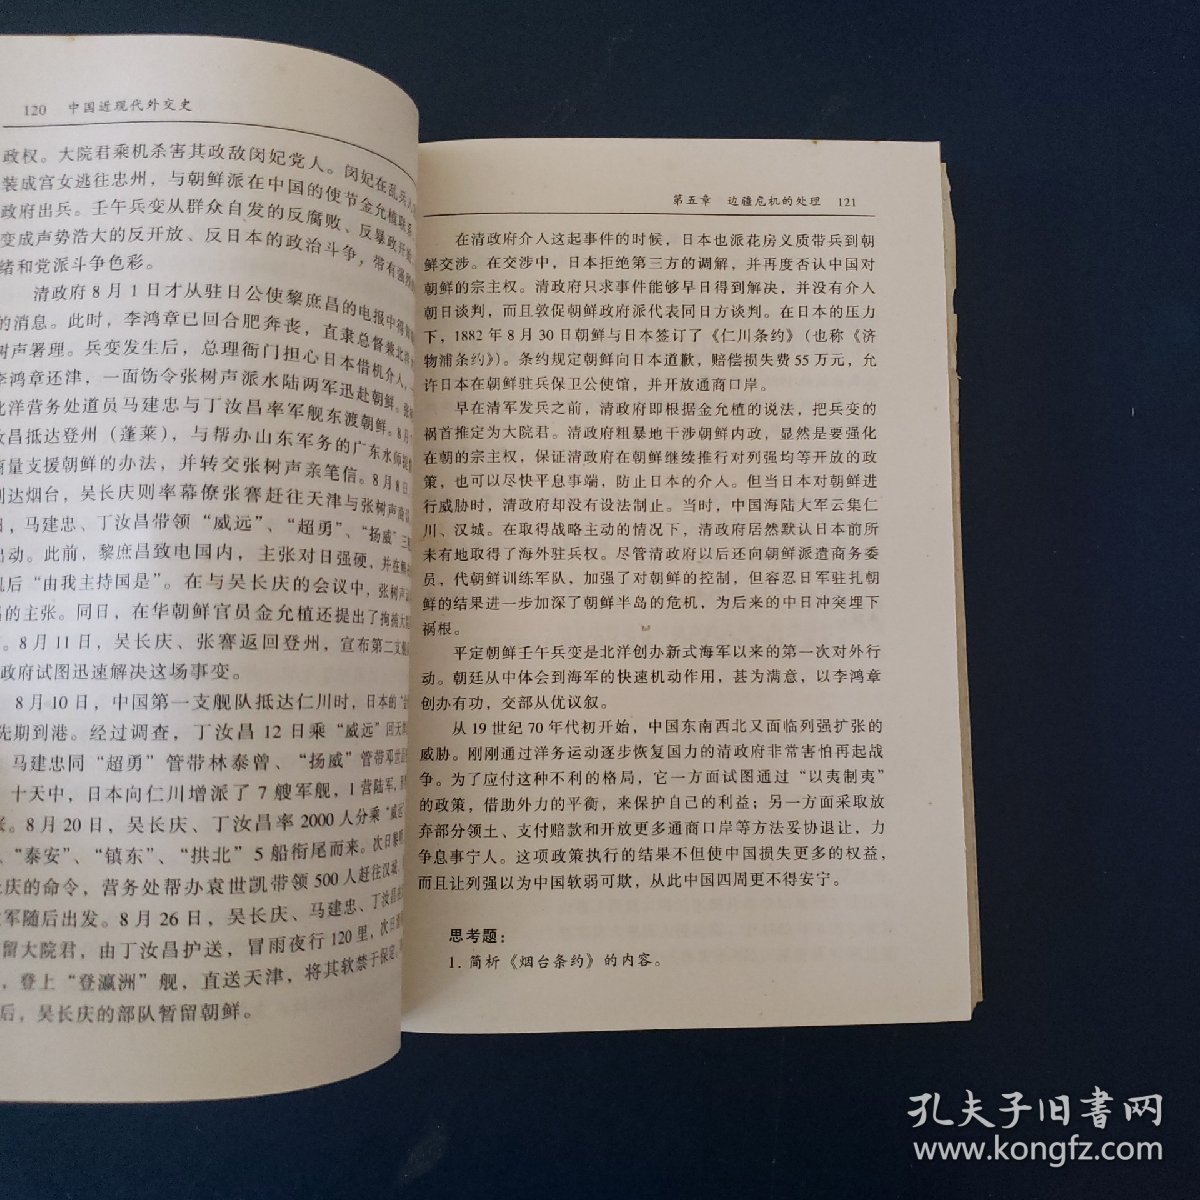 120 中国近现代外交史
政权。大院君乘机杀害其政敌闵妃党人。闵妃在乱兵
装成宫女逃往忠州，与朝鲜派在中国的使节金允植联系
政府出兵。壬午兵变从群众自发的反腐败、反暴政开始
变成声势浩大的反开放、反日本的政治斗争，带有强烈
绪和党派斗争色彩。
清政府8月1日才从驻日公使黎庶昌的电报中得
的消息。此时，李鸿章已回合肥奔丧，直隶总督兼北洋
树声署理。兵变发生后，总理衙门担心日本借机介入，
李鸿章还津，一面饬令张树声派水陆两军迅赴朝鲜。
北洋营务处道员马建忠与丁汝昌率军舰东渡朝鲜。8月
汝昌抵达登州（蓬莱），与帮办山东军务的广东水师提督
商量支援朝鲜的办法，并转交张树声亲笔信。8月8日
到达烟台，吴长庆则率幕僚张謇赶往天津与张树声商议
日，马建忠、丁汝昌带领“威远”、“超勇”、“扬威”三
出动。此前，黎庶昌致电国内，主张对日强硬，并在
乱后“由我主持国是”。在与吴长庆的会议中，张树声
昌的主张。同日，在华朝鲜官员金允植还提出了拘拿大
。8月11日，吴长庆、张謇返回登州，宣布第二支
政府试图迅速解决这场事变。
8月10日，中国第一支舰队抵达仁川时，日本的
先期到港。经过调查，丁汝昌12日乘“威远”回天津
马建忠同“超勇”管带林泰曾、“扬威”管带邓世昌
十天中，日本向仁川增派了7艘军舰，1营陆军，
。8月20日，吴长庆、丁汝昌率2000人分乘“威远”
、“泰安”、“镇东”、“拱北”5船衔尾而来。次日黎明
长庆的命令，营务处帮办袁世凯带领500人赶往汉城，
军随后出发。8月26日，吴长庆、马建忠、丁汝昌在
留大院君，由丁汝昌护送，冒雨夜行120里，次日
，登上“登瀛洲”舰，直送天津，将其软禁于保定。
后，吴长庆的部队暂留朝鲜。
第五章 边疆危机的处理 121
在清政府介入这起事件的时候，日本也派花房义质带兵到朝
鲜交涉。在交涉中，日本拒绝第三方的调解，并再度否认中国对
朝鲜的宗主权。清政府只求事件能够早日得到解决，并没有介入
朝日谈判，而且敦促朝鲜政府派代表同日方谈判。在日本的压力
下，1882年8月30日朝鲜与日本签订了《仁川条约》（也称《济
物浦条约》）。条约规定朝鲜向日本道歉，赔偿损失费55万元，允
许日本在朝鲜驻兵保卫公使馆，并开放通商口岸。
早在清军发兵之前，清政府即根据金允植的说法，把兵变的
祸首推定为大院君。清政府粗暴地干涉朝鲜内政，显然是要强化
在朝的宗主权，保证清政府在朝鲜继续推行对列强均等开放的政
策，也可以尽快平息事端，防止日本的介入。但当日本对朝鲜进
行威胁时，清政府却没有设法制止。当时，中国海陆大军云集仁
川、汉城。在取得战略主动的情况下，清政府居然默认日本前所
未有地取得了海外驻兵权。尽管清政府以后还向朝鲜派遣商务委
员，代朝鲜训练军队，加强了对朝鲜的控制，但容忍日军驻扎朝
鲜的结果进一步加深了朝鲜半岛的危机，为后来的中日冲突埋下
祸根。
平定朝鲜壬午兵变是北洋创办新式海军以来的第一次对外行
动。朝廷从中体会到海军的快速机动作用，甚为满意，以李鸿章
创办有功，交部从优议叙。
从19世纪70年代初开始，中国东南西北又面临列强扩张的
威胁。刚刚通过洋务运动逐步恢复国力的清政府非常害怕再起战
争。为了应付这种不利的格局，它一方面试图通过“以夷制夷”
的政策，借助外力的平衡，来保护自己的利益；另一方面采取放
弃部分领土、支付赔款和开放更多通商口岸等方法妥协退让，力
争息事宁人。这项政策执行的结果不但使中国损失更多的权益，
而且让列强以为中国软弱可欺，从此中国四周更不得安宁。
思考题：
1. 简析《烟台条约》的内容。
孔夫子旧书网
www.kongfz.com